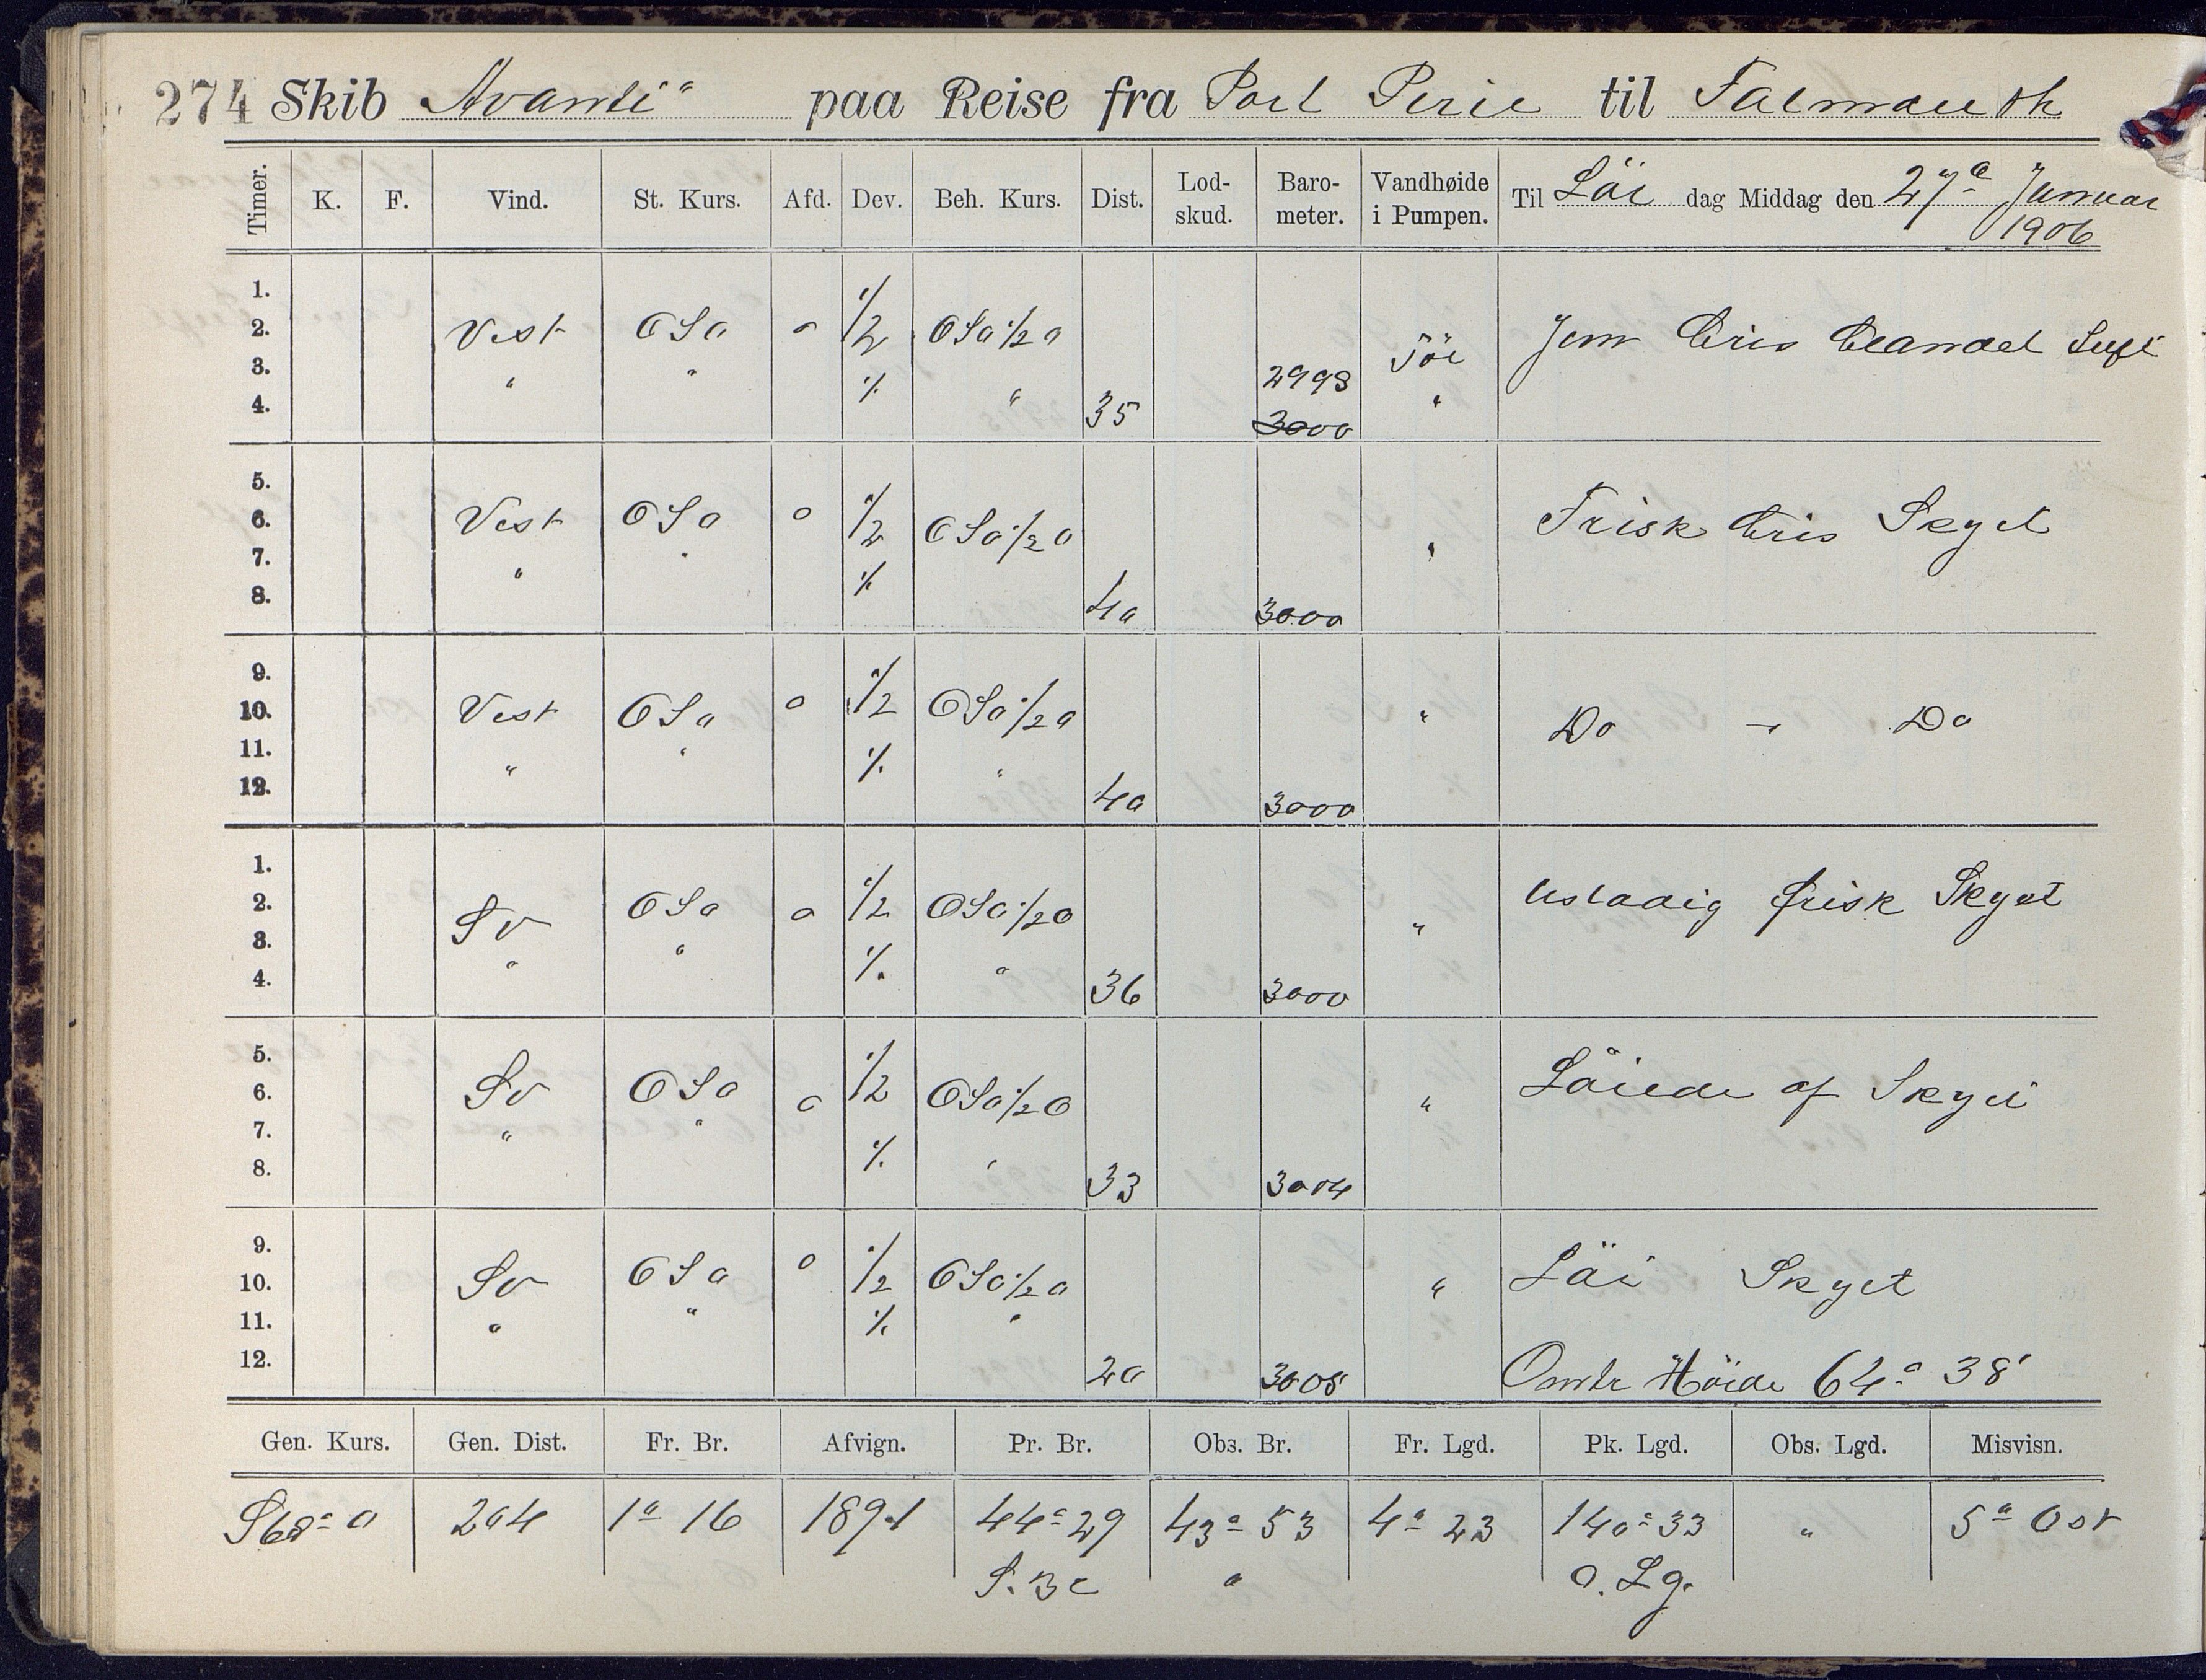 274 Skib Avanti" paa Reise fra Port Pirie til Falmouth
Timer. K. F. Vind. St. Kurs. Afd. Dev. Beh. Kurs. Dist. Lod-skud. Baro-meter. Vandhøide i Pumpen. Til Lör dag Middag den 27de Januar 1906
1.
2. Vest OSO 0 1/2 OSO 1/2 O Jevn Bris blandet Luft
3. " " % " 2998 Tör
4. 35 3000 "
5.
6. Vest OSO 0 1/2 OSO 1/2 O " Frisk Bris Skyet
7. " " %
8. 40 3000
9.
10. Vest OSO 0 1/2 OSO 1/2 O " Do - Do
11. " " % "
12. 40 3000
1.
2. SV OSO 0 1/2 OSO 1/2 O " Ustadig frisk Skyet
3. " " % "
4. 36 3000
5.
6. SV OSO 0 1/2 OSO 1/2 O " Löiede af Skyet
7. " " % "
8. 33 3004
9.
10. SV OSO 0 1/2 OSO 1/2 O " Löi Skyet
11. " " % "
12. 20 3008 Höide 64° 38'
Gen. Kurs. Gen. Dist. Fr. Br. Afvign. Pr. Br. Obs. Br. Fr. Lgd. Pk. Lgd. Obs. Lgd. Misvisn.
S68° O 204 1° 16 189.1 44° 29 43° 53 4° 23 140° 33 " 5° Ost
S. Br " O. Lg.